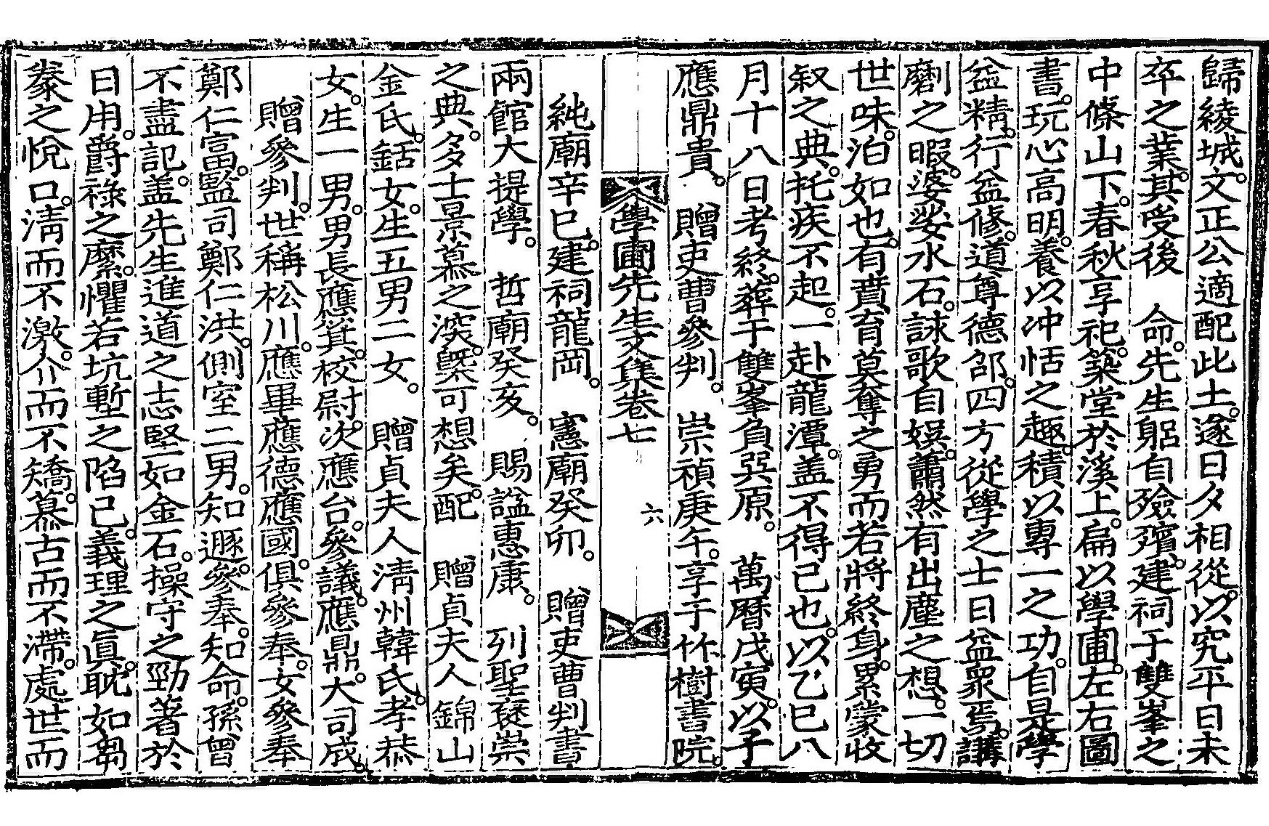 歸綾城。文正公適配此土。遂日夕相從。以究平日未
卒之業。其受後 命。先生躬自殮殯。建祠于雙峯之
中條山下。春秋享祀。築堂於溪上。扁以學圃。左右圖
書。玩心高明。養以冲恬之趣。積以專一之功。自是學
益精。行益修。道尊德卲。四方從學之士日益衆焉。講
劘之暇。婆娑水石。詠歌自娛。蕭然有出塵之想。一切
世味。泊如也。有賁育莫奪之勇而若將終身。累蒙收
叙之典。托疾不起。一赴龍潭。盖不得已也。以乙巳八
月十八日考終。葬于雙峯負巽原。 萬曆戊寅。以子
應鼎貴。 贈吏曹參判。 崇禎庚午。享于竹樹書院。
學圃先生文集卷七 六
純廟辛巳。建祠龍岡。 憲廟癸卯。 贈吏曹判書
兩館大提學。 哲廟癸亥。 賜諡惠康。 列聖褒崇
之典。多士景慕之深。槩可想矣。配 贈貞夫人錦山
金氏。銛女。生五男二女。 贈貞夫人淸州韓氏。孝恭
女。生一男。男長應箕。校尉。次應台。參議。應鼎。大司成。
贈參判。世稱松川。應畢應德應國。俱參奉。女參奉
鄭仁富。監司鄭仁洪。側室二男。知遯。參奉。知命。孫曾
不盡記。盖先生進道之志堅如金石。操守之勁著於
日用。爵祿之縻。懼若坑塹之陷己。義理之眞。耽如芻
豢之悅口。淸而不激。介而不矯。慕古而不滯。處世而